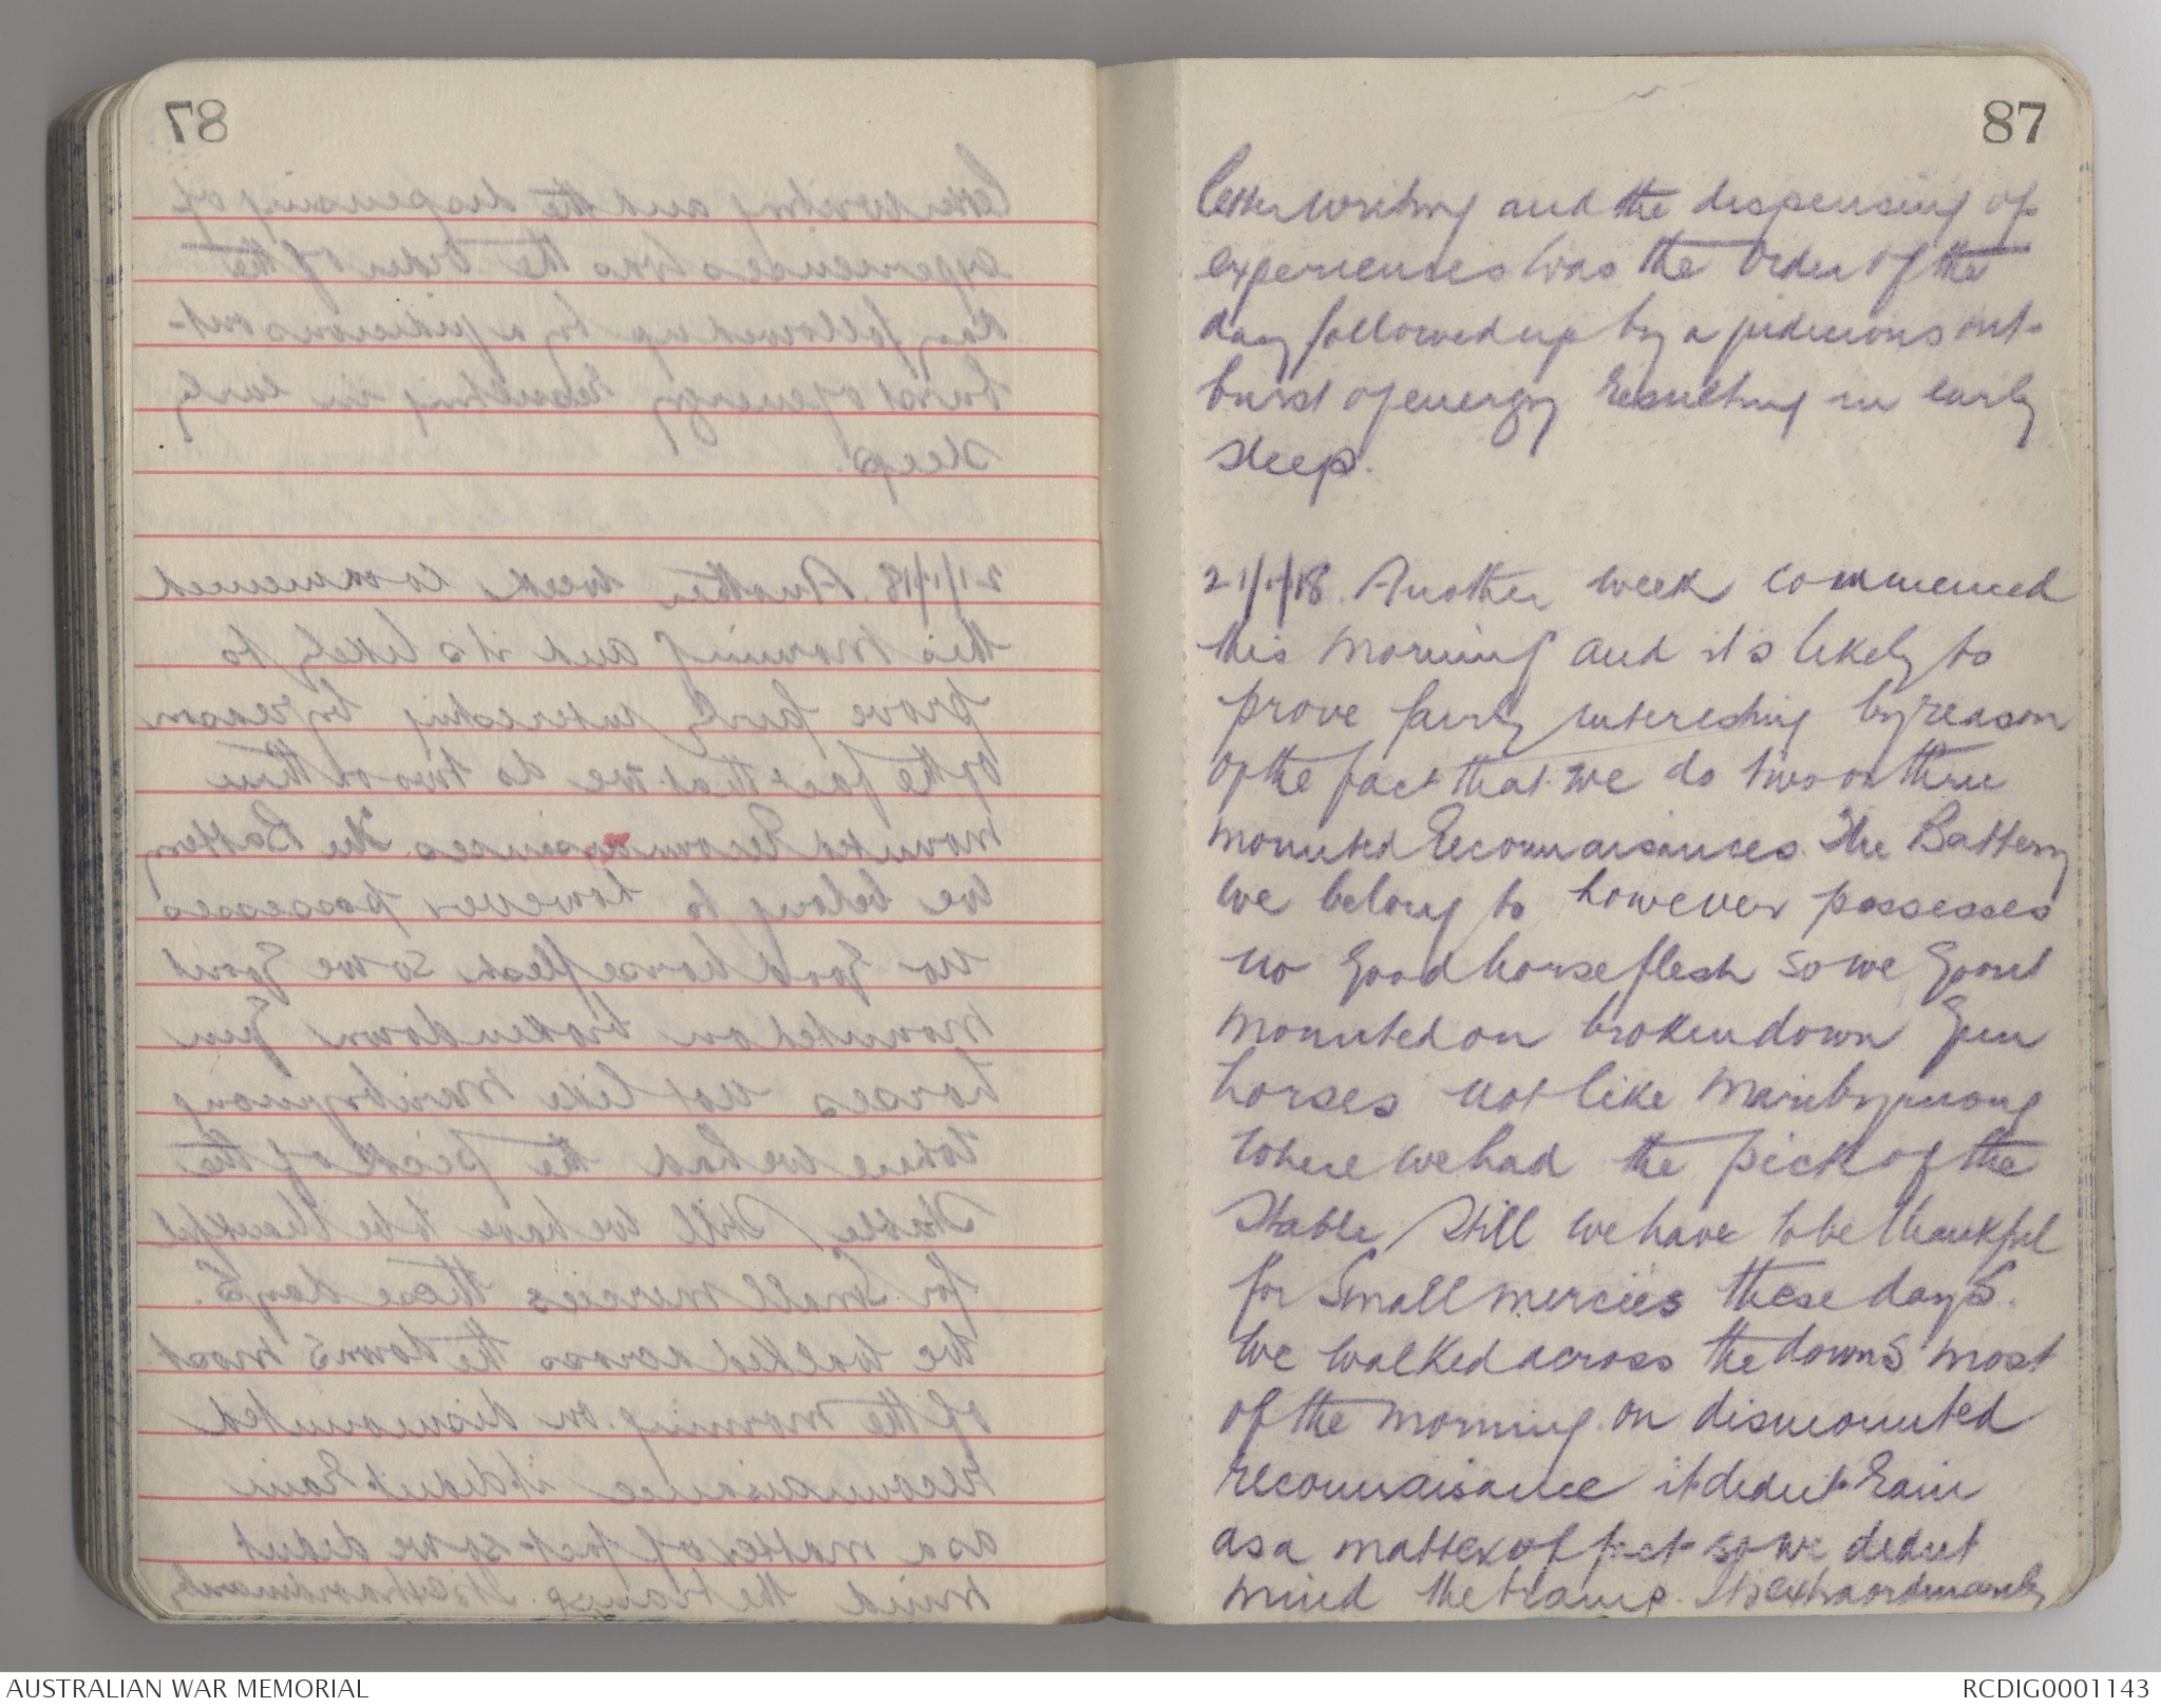 87
letter writing and the dispensing of
experiences was the order of the
day followed up by a judicious out-
burst of energy resulting in early
sleep.
21/1/18. Another week commenced
this morning and it's likely to
prove fairly interesting by reason
of the fact that we do two or three
mounted Reconnaisances. The Battery
we belong to however possesses
no good horseflesh so we go out
mounted on broken down gun
horses not like Maribyrnong
where we had the pick of the
Stable, Still we have to be thankful
for Small mercies these days.
We walked across the downs most
of the morning on dismounted
reconnaisance it didnt rain
as a matter of fact so we didnt
mind the tramp. It's extraordinarily
AUSTRALIAN WAR MEMORIAL
RCDIG0001143